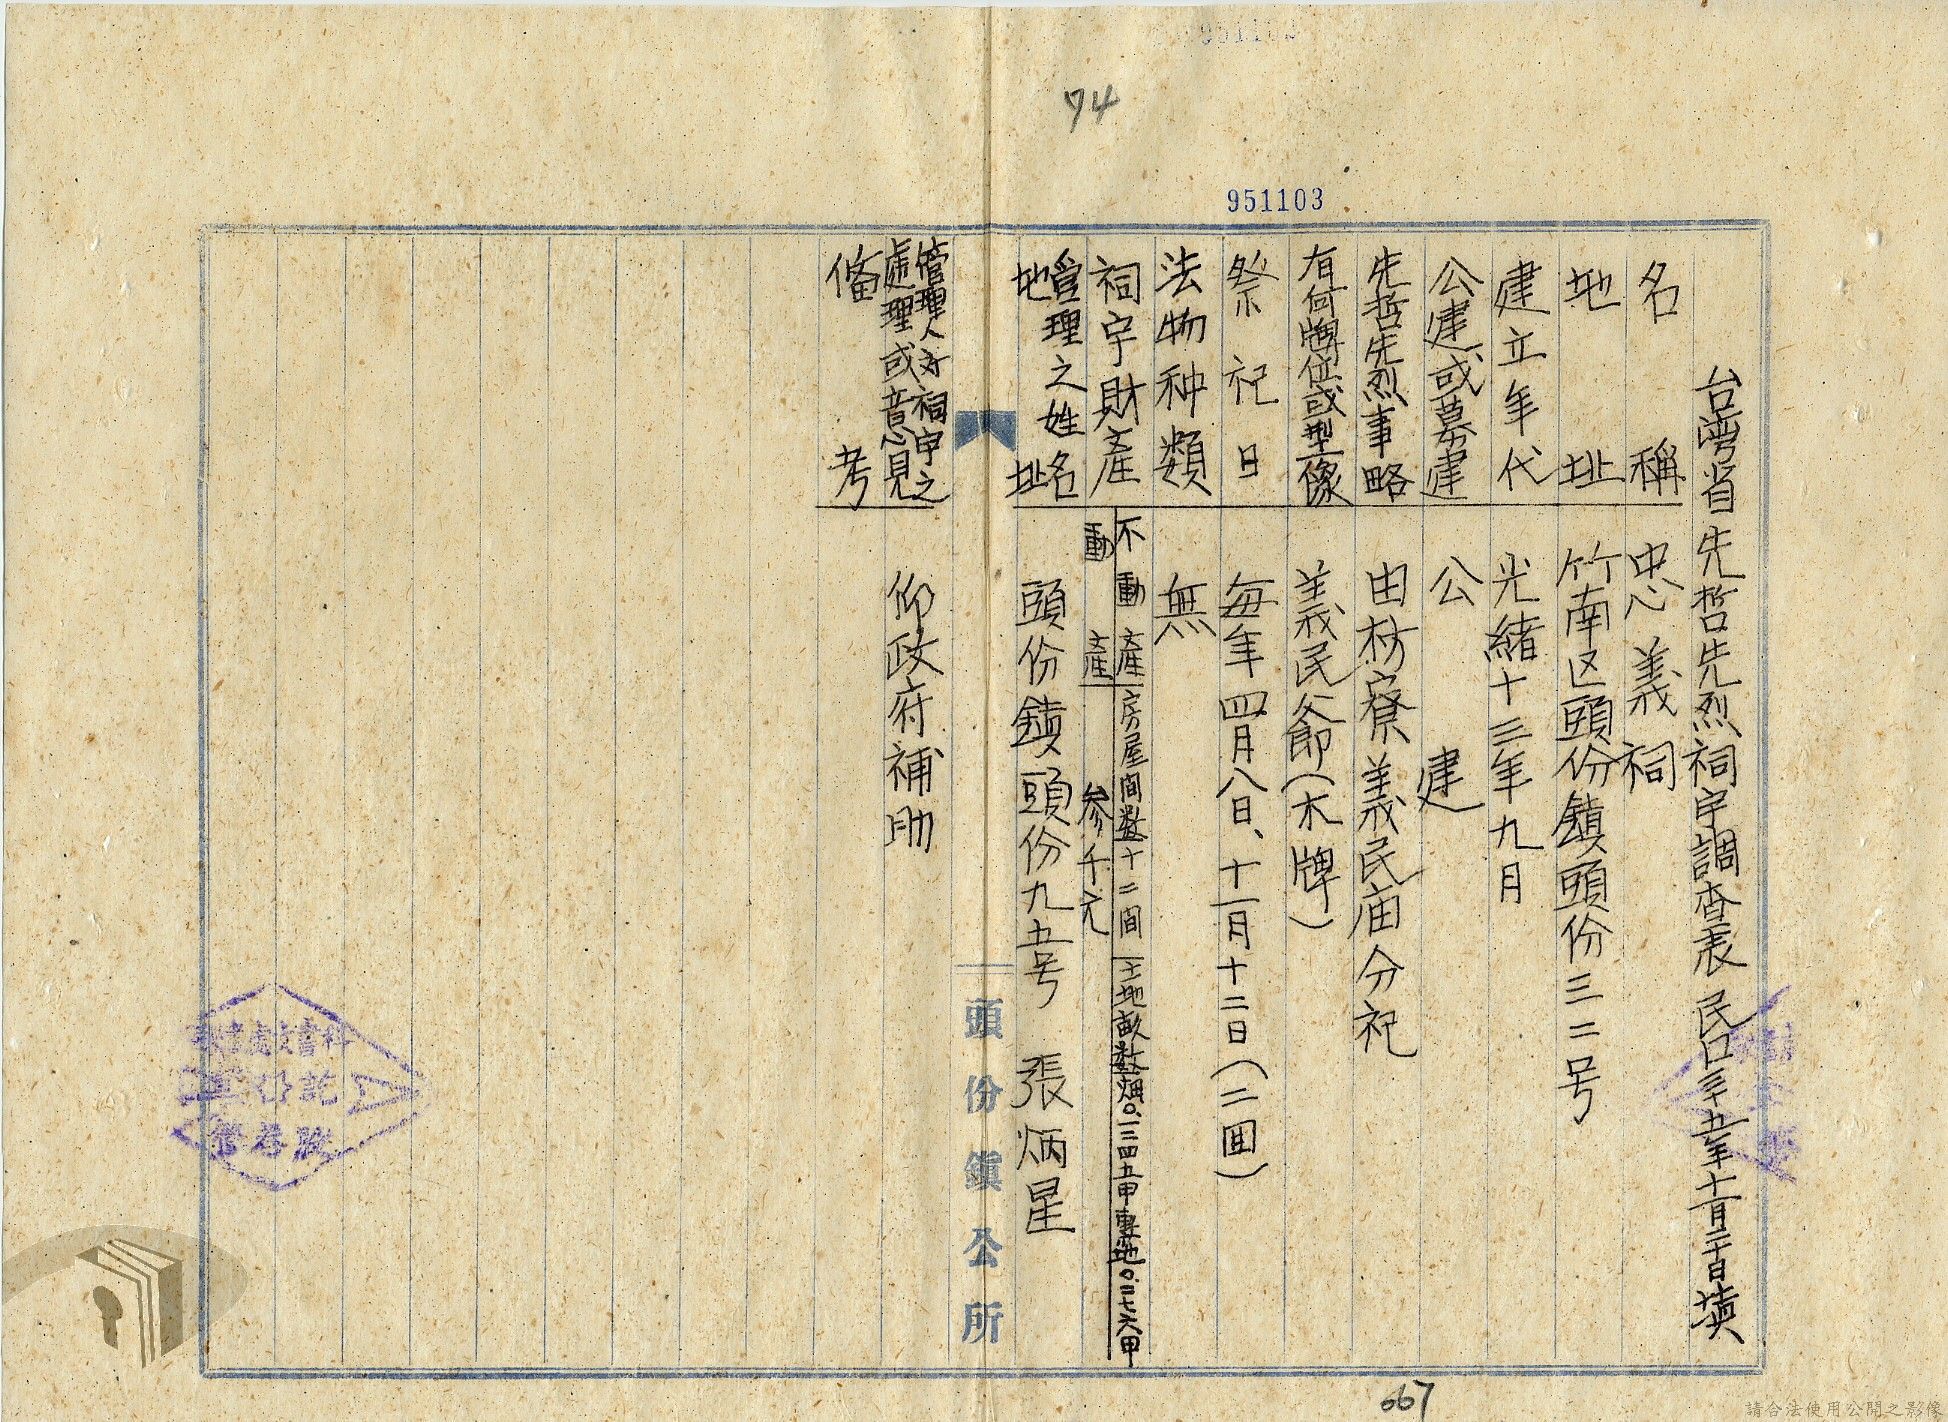 951102
74
951103
台湾省先哲先烈祠宇調查表 民囗三十五年十一月二十日填
名稱 忠義祠
地址 竹南区頭份鎮頭份三二号
建立年代 光緒十三年九月
公建或募建 公建
先哲先烈事略 由枋寮義民庙分祀
有何牌位或型像 義民爺(木牌)
祭祀日 每年四月八日、十一月十二日(二囬)
法物种類 無
祠宇財產 不動產 房屋間数十二間 土地畝数畑0.一三四五甲 0.二七六甲
動產 参千元
管理之姓名地址 頭份鎮頭份九五号 張炳星
頭份鎮公所
管理人对祠宇之處理或意見 仰政府補助
俻考
067
請合法使用公開之影像